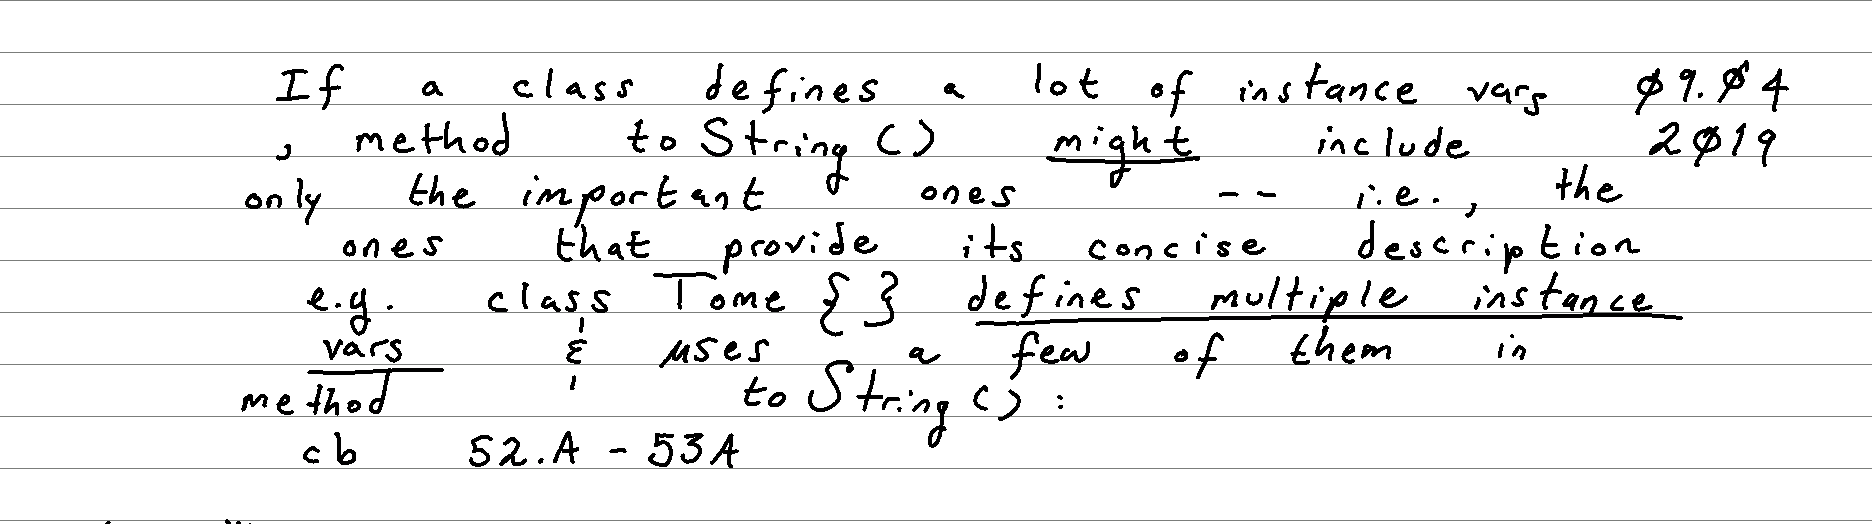 If a class defines a lot of instance vars 09.04
, method toString() might include 2019
only the important ones -- i.e., the
ones that provide its concise description
e.g. class Tome {} defines multiple instance
vars & uses a few of them in
method toString():
cb 52.A - 53A